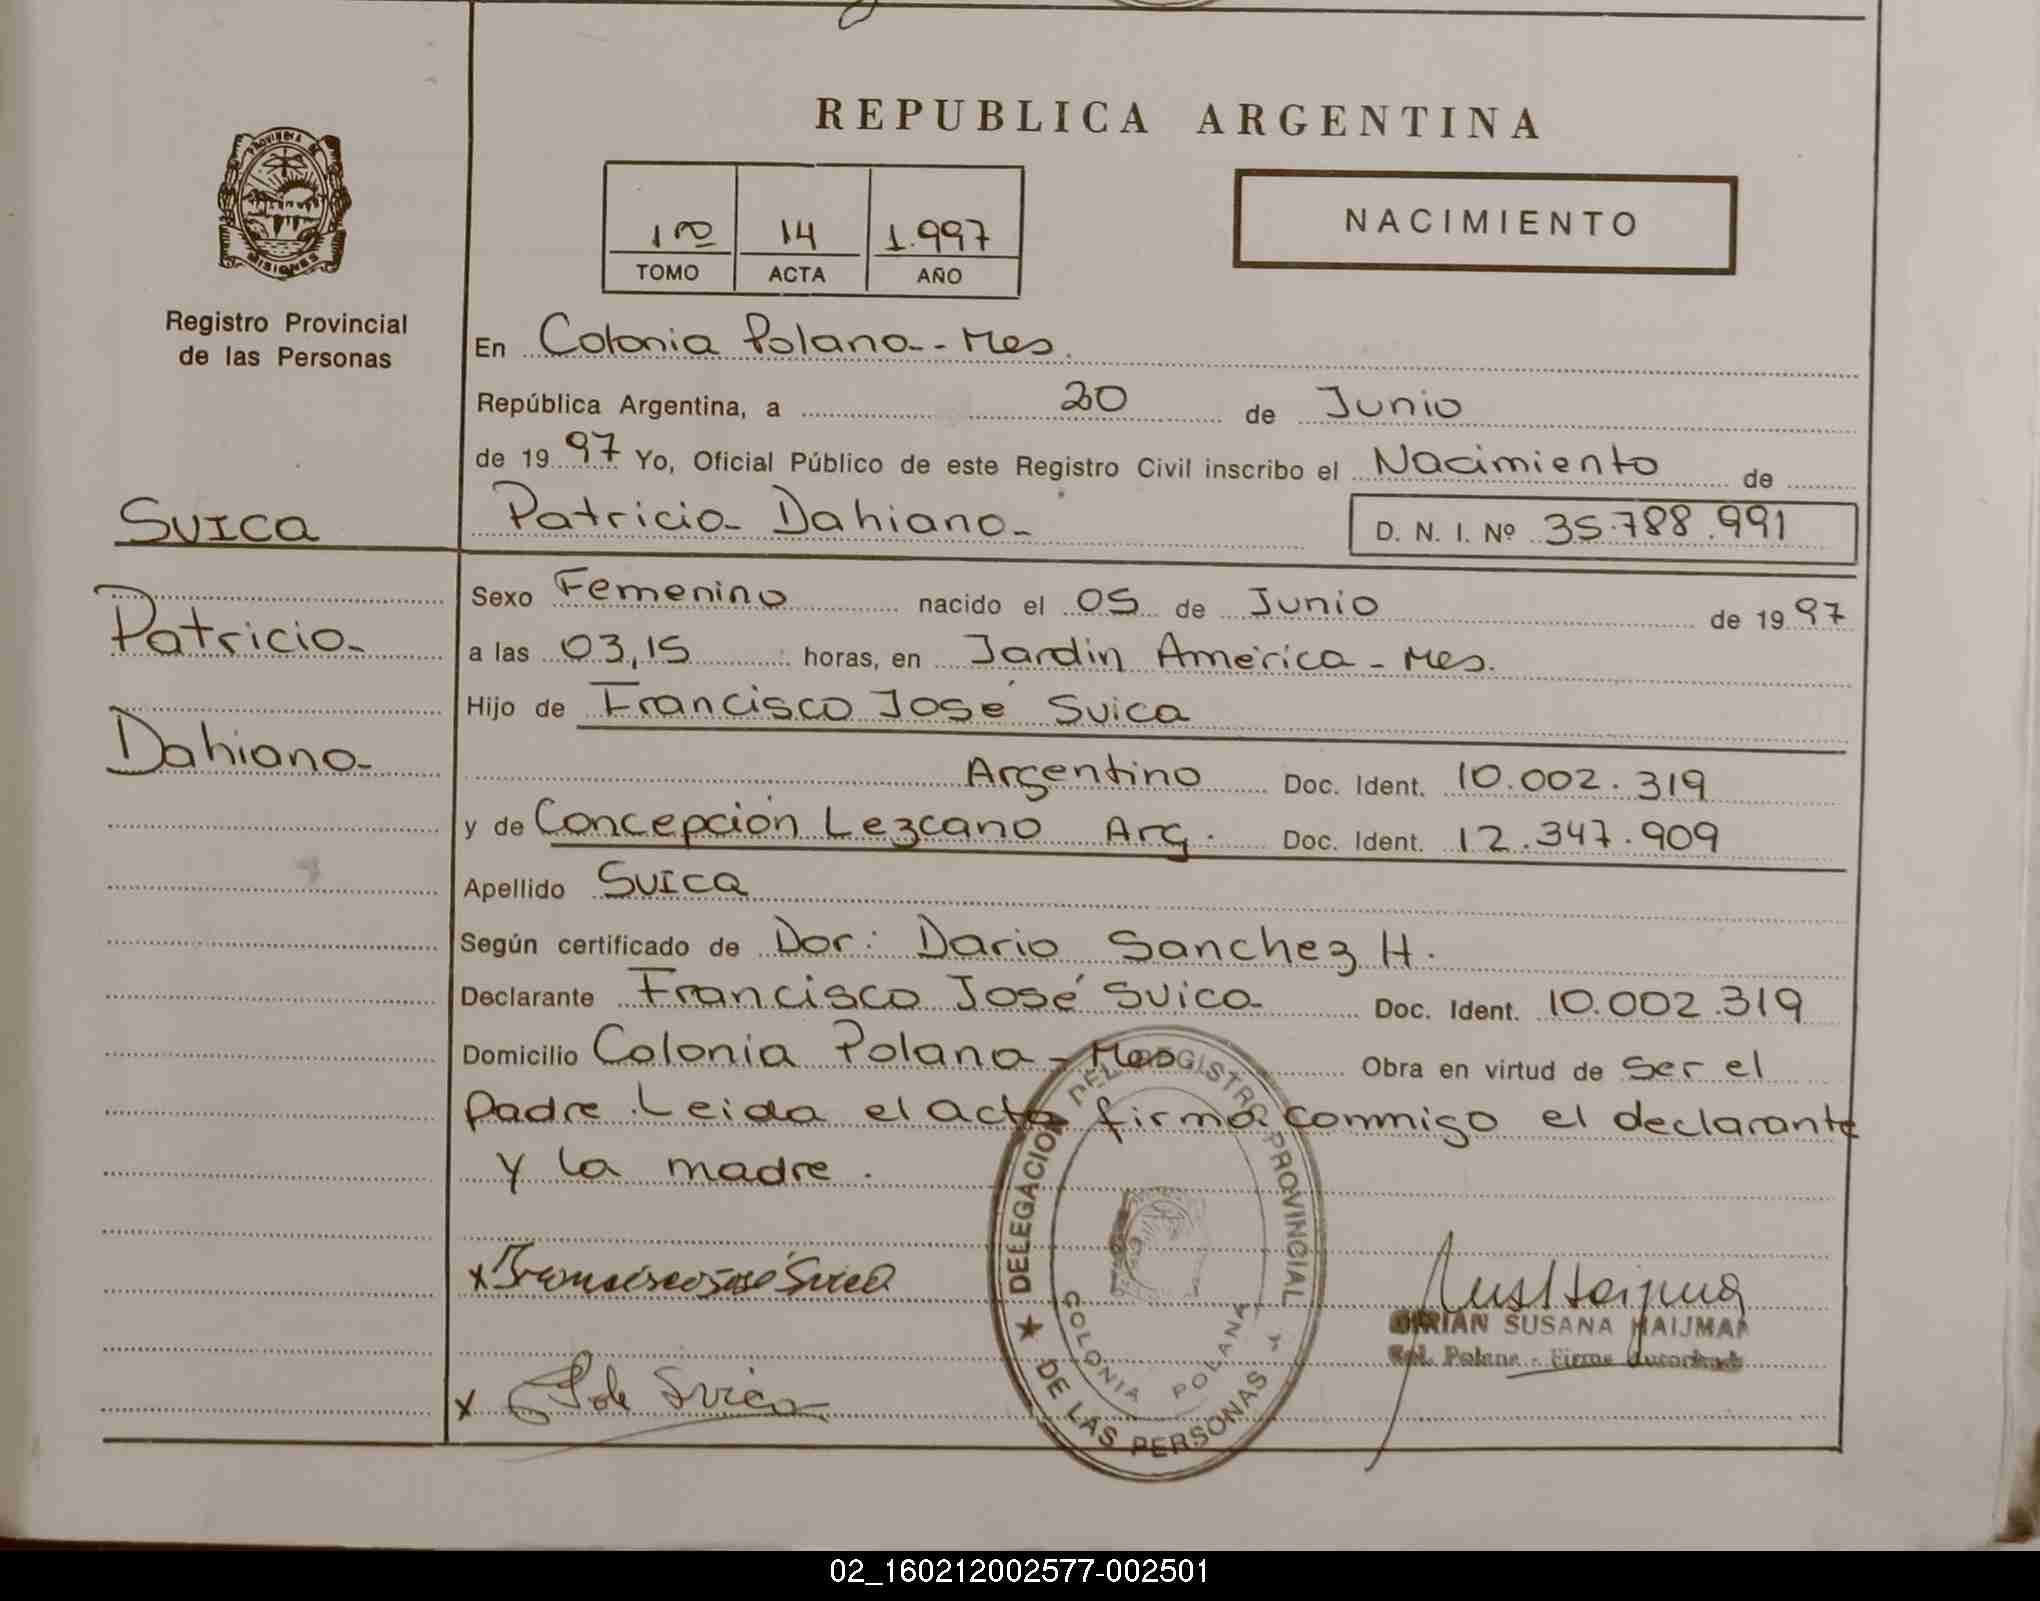 REPUBLICA ARGENTINA
PROVINCIA DE
MISIONES
Registro Provincial
de las Personas
1ro 14 1.997
TOMO ACTA AÑO
NACIMIENTO
En Colonia Polana - Mes.
República Argentina, a 20 de Junio
de 19 97 Yo, Oficial Público de este Registro Civil inscribo el Nacimiento de
Patricia Dahiana
D. N. I. Nº 35.788.991
SUICA
Patricia
Dahiana
Sexo Femenino nacido el 05 de Junio de 19 97
a las 03,15 horas, en Jardin América - Mes.
Hijo de Francisco José Suica
Argentino Doc. Ident. 10.002.319
y de Concepción Lezcano Arg. Doc. Ident. 12.347.909
Apellido SUICA
Según certificado de Dor: Dario Sanchez H.
Declarante Francisco José Suica Doc. Ident. 10.002.319
Domicilio Colonia Polana - Mes Obra en virtud de ser el
padre. Leida el acta firma conmigo el declarante
y la madre.
x Francisco José Suica
x de Suica
DELEGACION DEL REGISTRO PROVINCIAL
DE LAS PERSONAS
COLONIA POLANA
MIRIAN SUSANA HAIJMAN
Col. Polana - Firma Autorizada
02_160212002577-002501